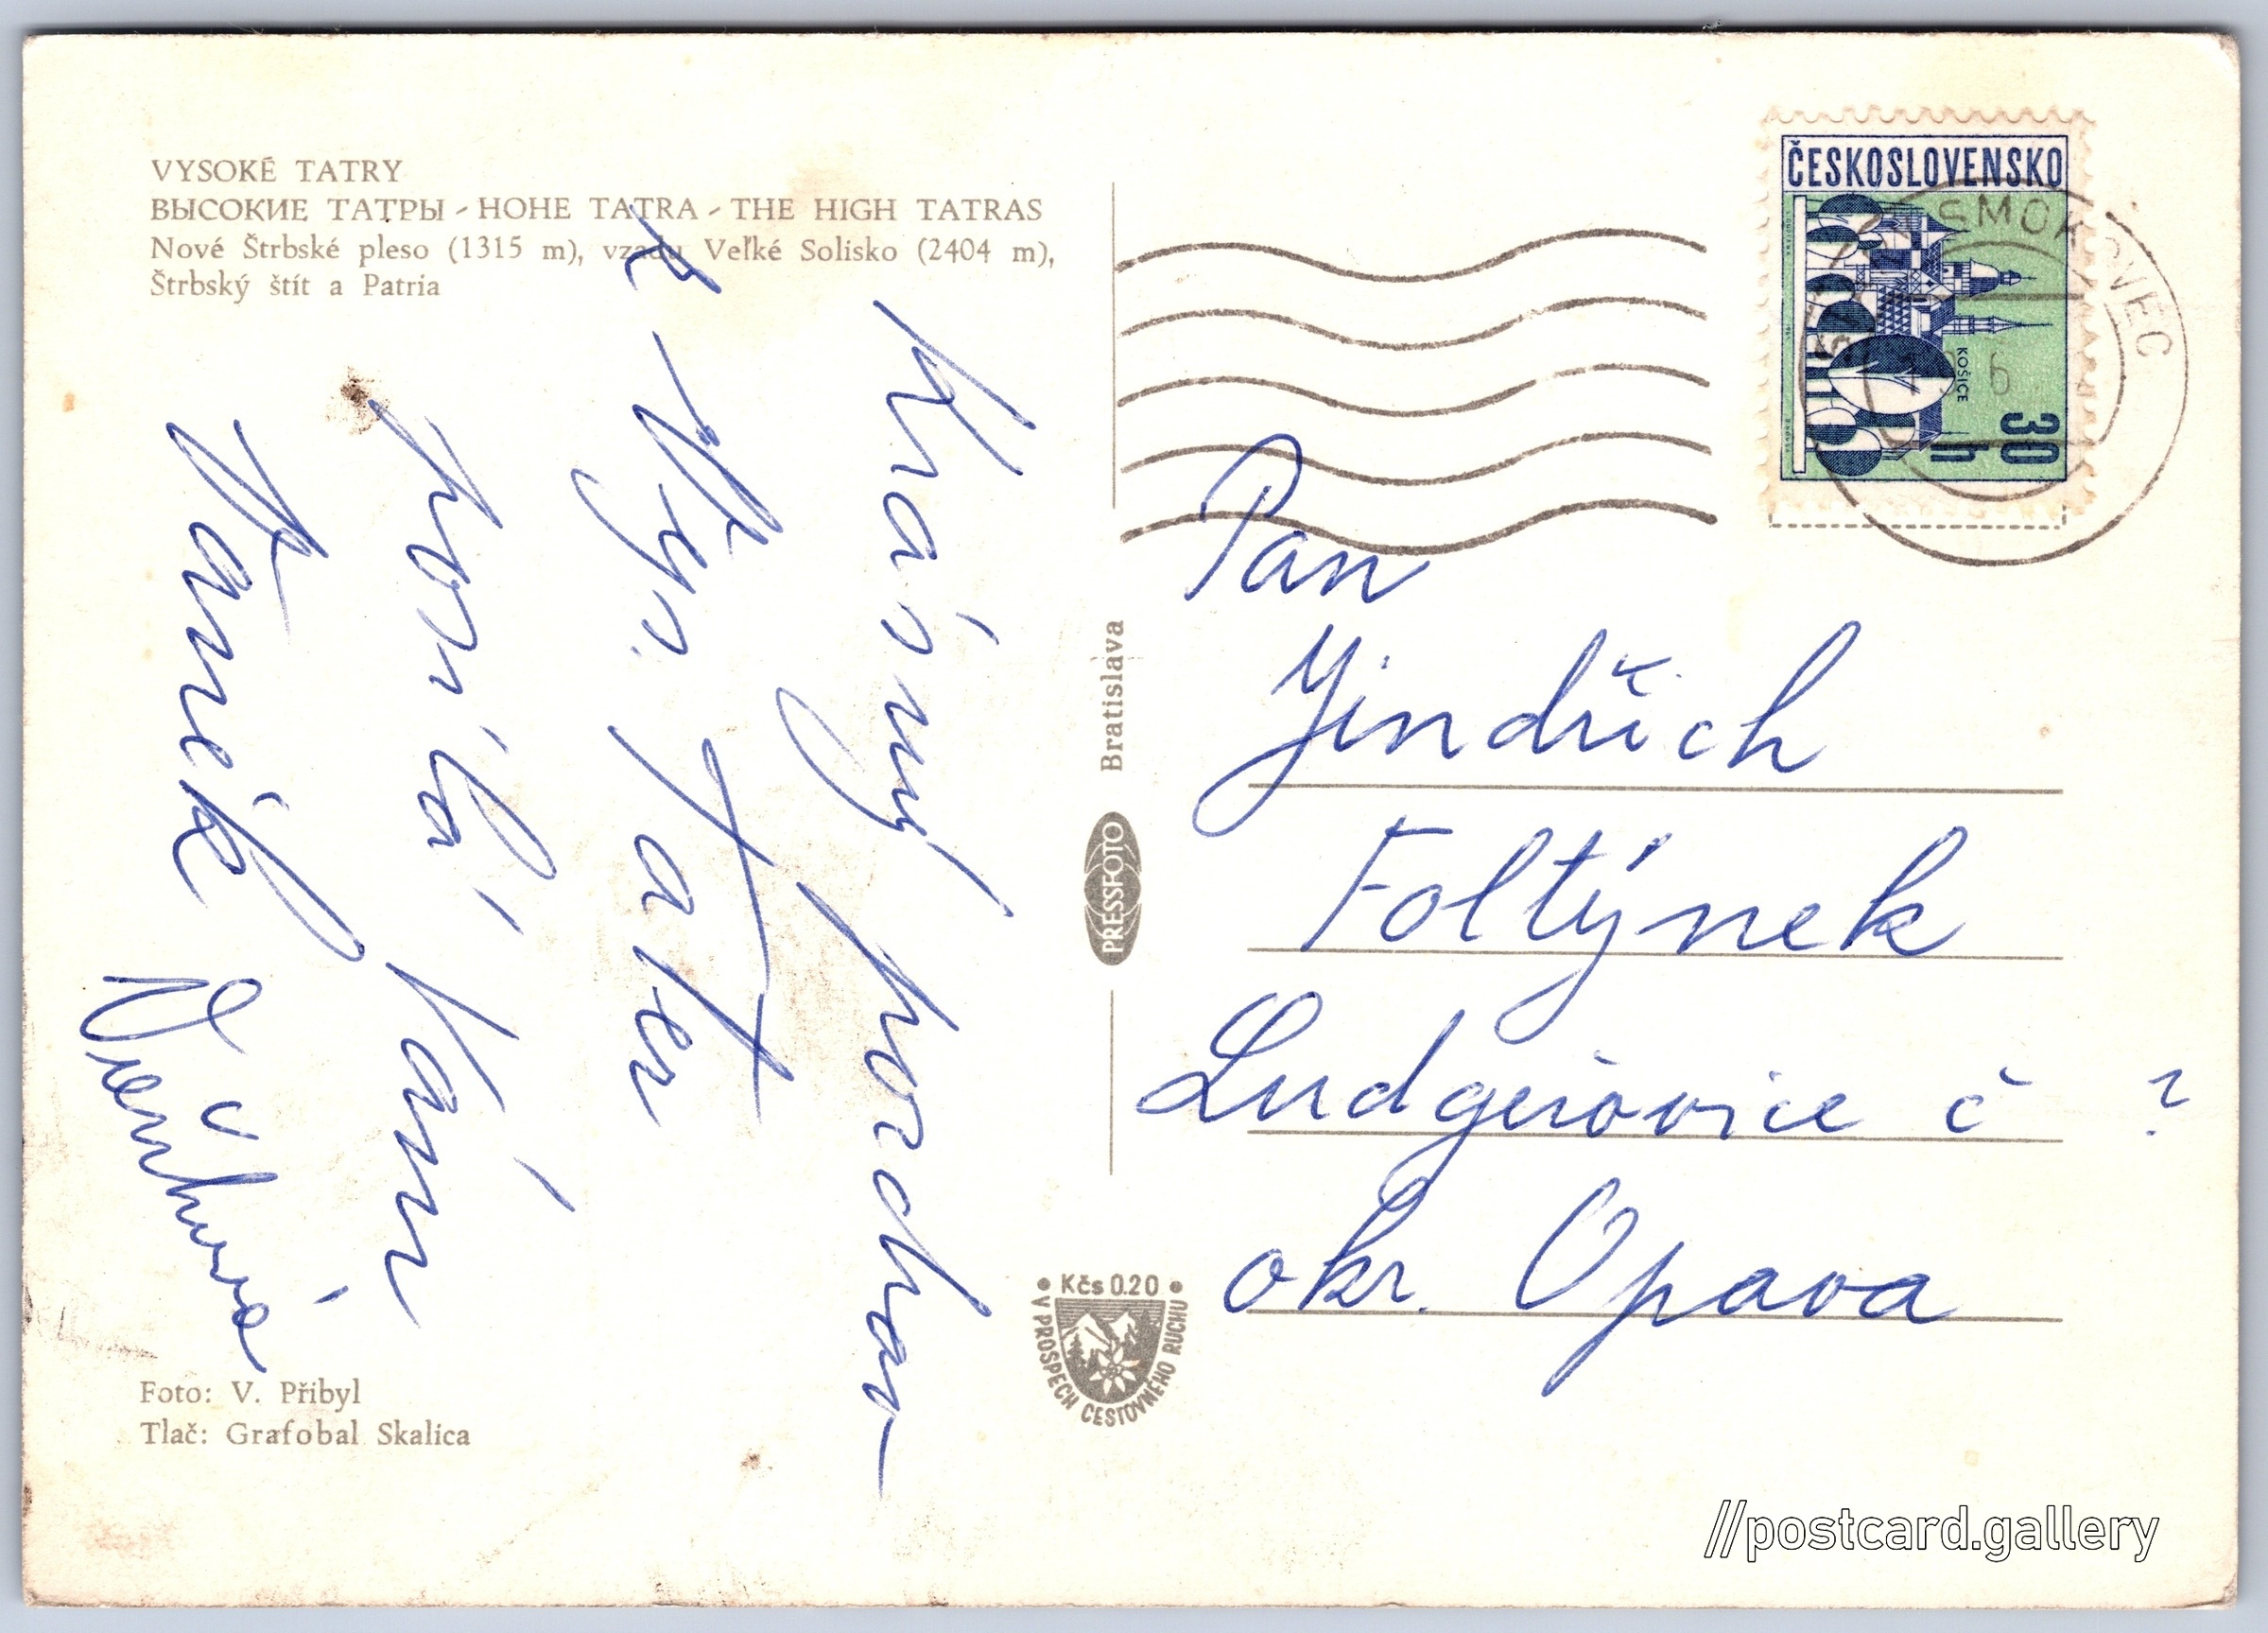 VYSOKÉ TATRY
ВЫСОКИЕ ТАТРЫ - HOHE TATRA - THE HIGH TATRAS
Nové Štrbské pleso (1315 m), vzadu Veľké Solisko (2404 m),
Štrbský štít a Patria
Krásný pozdrav
z Vys. Tater
posílá Vám
Foto: V. Přibyl
Tlač: Grafobal Skalica
Bratislava
PRESSFOTO
Kčs 0.20
V PROSPECH CESTOVNÉHO RUCHU
ČESKOSLOVENSKO
KOŠICE
30 h
SMOKOVEC
Pan
Jindřich
Foltýnek
Ludgeřovice č ?
okr. Opava
//postcard.gallery